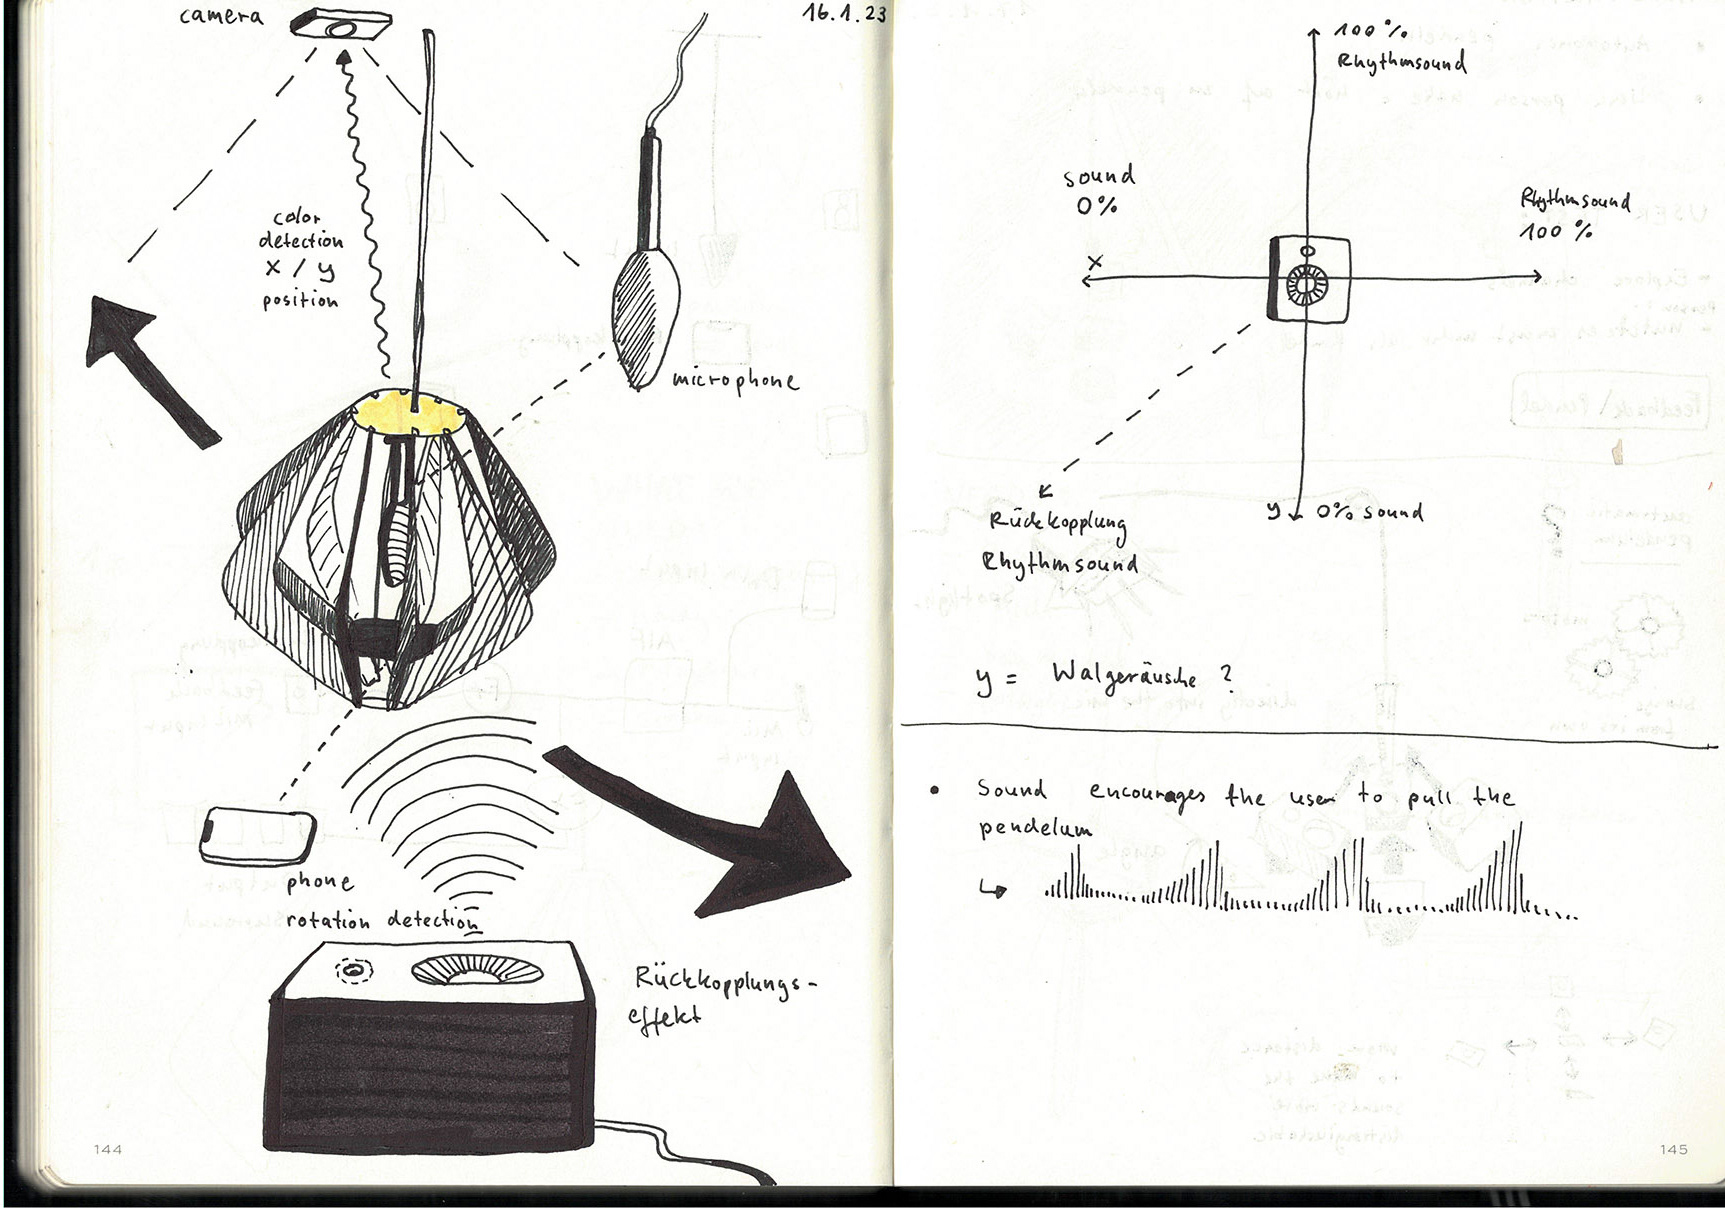 camera
16.1.23
color
detection
x / y
position
microphone
phone
rotation detection
Rückkopplungs-
effekt
144
100 %
Rhythmsound
sound
0%
Rhythmsound
100 %
x
Rückkopplung
Rhythmsound
y 0% sound
y = Walgeräusche ?
• Sound encourages the user to pull the
pendelum
145